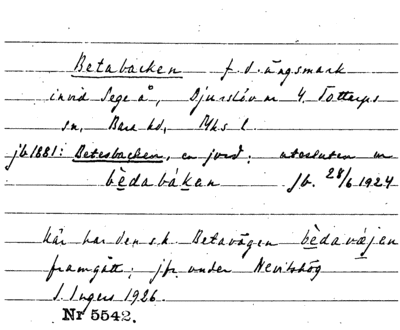 Betabacken f.d. ängsmark
invid Sege å, Djurslöv nr 4, Tottarps
sn, Bara hd, Mhs l.
jb. 1881: Betesbacken, en jord; utesluten ur
bèdabákan jb. 28/6 1924
Här har den s.k. Betavägen bèdavæjen
framgått; jfr under Nevitshög
I. Ingers 1926.
Nr 5542.